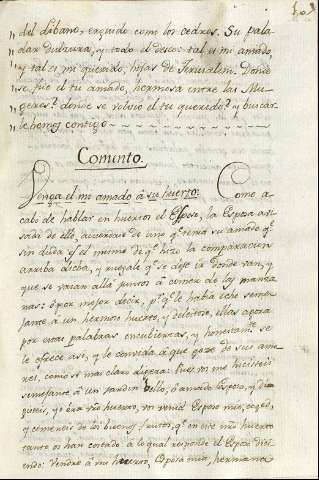 del Libano, erguido como los cedros. Su pala
dar dulzura, y todo el deseos: tal es mi amado,
y tal es mi querido, hijas de Jerusalem. Donde
se fue el tu amado, hermosa entre las Mu
geres? donde se volvió el tu querido? y buscar
le hemos contigo.
Comento.
Venga el mi amado á su huerto: Como a
cabo de hablar en huertos el Esposo, la Esposa avi
sada de ello, acuerdase de uno qe tenia su amado qe
sin duda es el mismo de qe hizo la comparacion
arriba dicha, y ruegale qe se deje ir donde van, y
que se vaian allá juntos á comer de las manza
nas: ó por mejor decir, pr qe le habia hecho seme
jante á un hermoso huerto, y deleitoso, ella agora
por estas palabras encubiertas, y honestamte se
le ofrece asi, y le convida á que goze de sus amo
res, como si mas claro dijera: Pues vos me hicisteis
semejante á un jardin bello, ó amado Esposo, y dixis
teis, yo era vro huerto, venid Esposo mio, coged,
y comereis de los buenos frutos, qe en este mio huerto
tanto os han costado: á lo qual responde el Esposo dici
endo: Vendré á mi huerto, Esposa mia, hermana